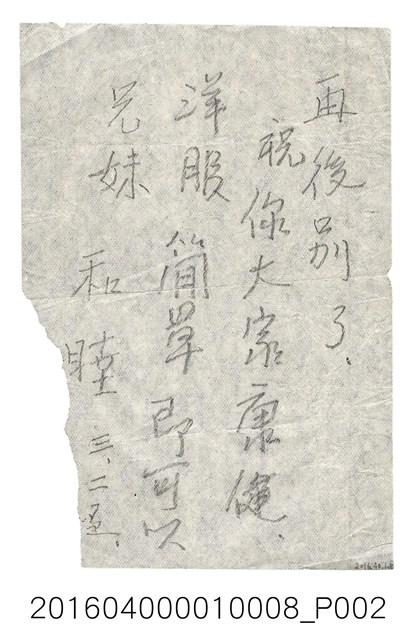 再後別了.
祝你大家康健.
洋服簡单即可以
兄妹和睦 三、二五、
201604000010008_P002